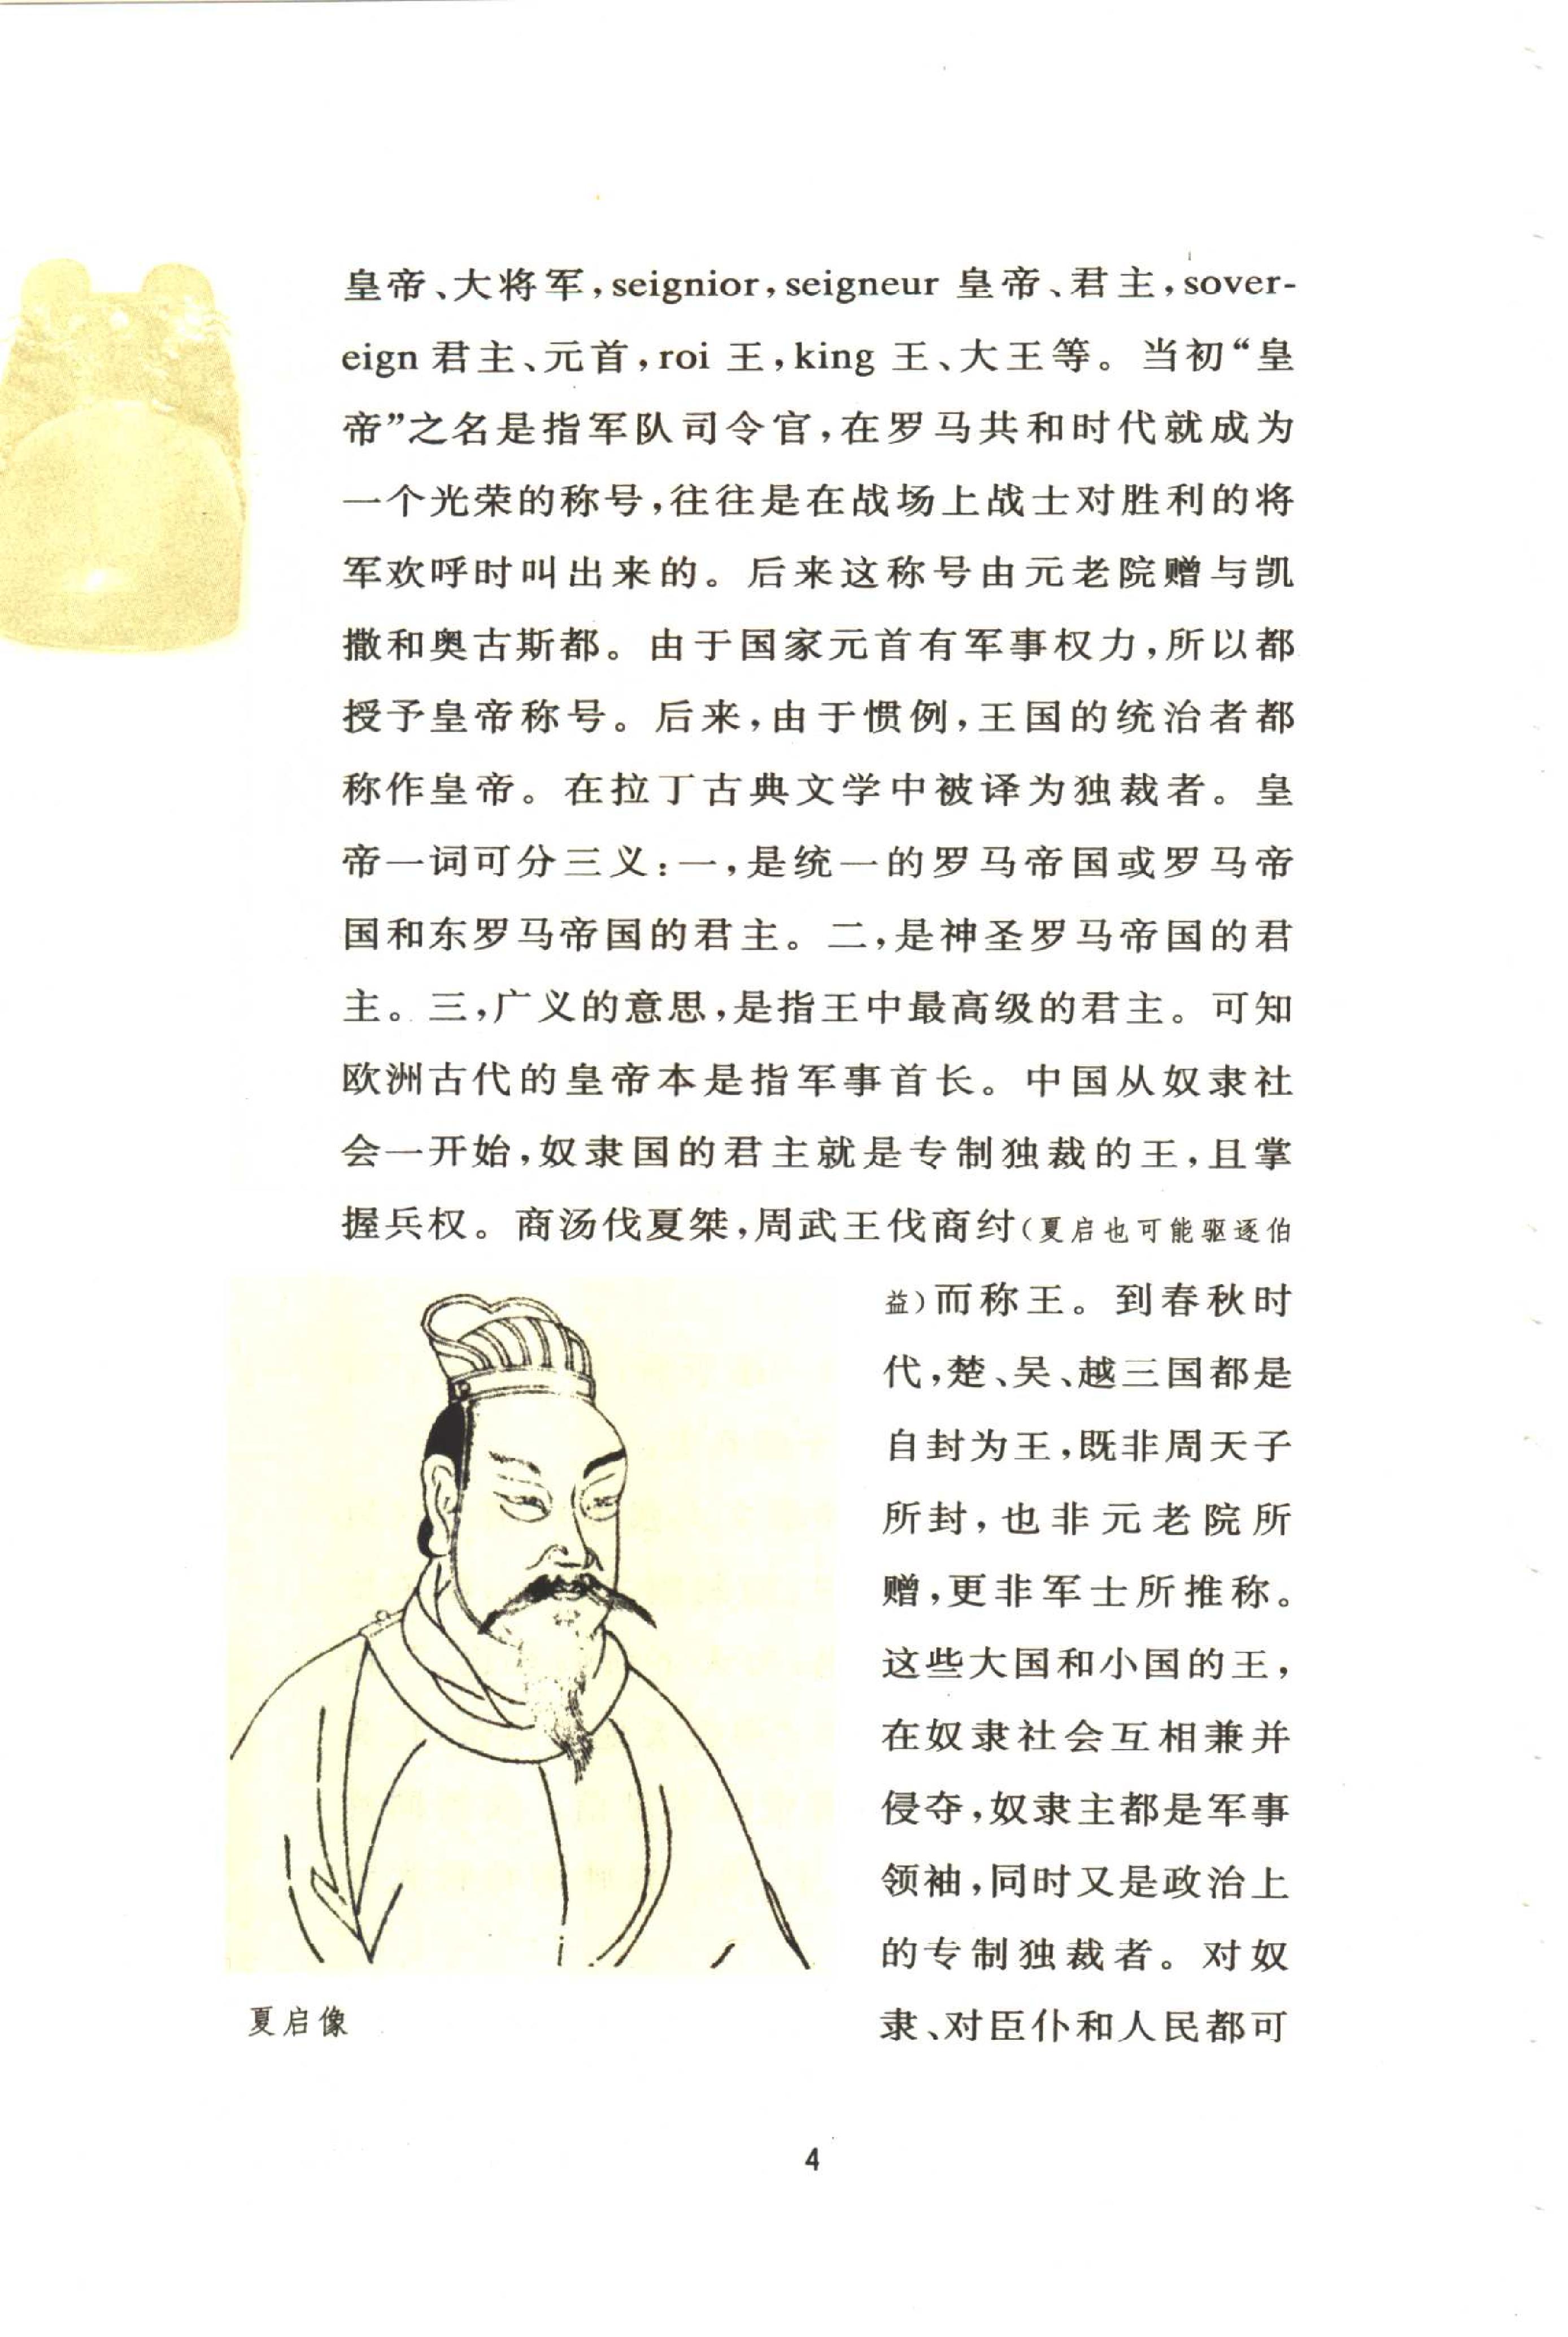 皇帝、大将军，seignior，seigneur 皇帝、君主，sover-
eign 君主、元首，roi 王，king 王、大王等。当初“皇
帝”之名是指军队司令官，在罗马共和时代就成为
一个光荣的称号，往往是在战场上战士对胜利的将
军欢呼时叫出来的。后来这称号由元老院赠与凯
撒和奥古斯都。由于国家元首有军事权力，所以都
授予皇帝称号。后来，由于惯例，王国的统治者都
称作皇帝。在拉丁古典文学中被译为独裁者。皇
帝一词可分三义：一，是统一的罗马帝国或罗马帝
国和东罗马帝国的君主。二，是神圣罗马帝国的君
主。三，广义的意思，是指王中最高级的君主。可知
欧洲古代的皇帝本是指军事首长。中国从奴隶社
会一开始，奴隶国的君主就是专制独裁的王，且掌
握兵权。商汤伐夏桀，周武王伐商纣（夏启也可能驱逐伯
益）而称王。到春秋时
代，楚、吴、越三国都是
自封为王，既非周天子
所封，也非元老院所
赠，更非军士所推称。
这些大国和小国的王，
在奴隶社会互相兼并
侵夺，奴隶主都是军事
领袖，同时又是政治上
的专制独裁者。对奴
隶、对臣仆和人民都可
夏启像
4